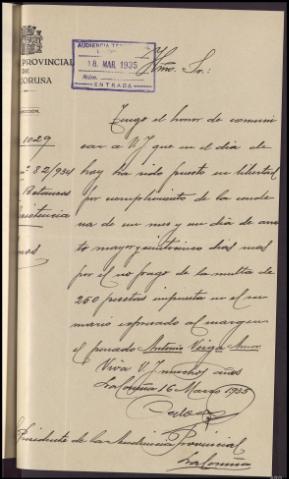 PROVINCIAL
DE
CORUÑA
AUDIENCIA
18 MAR. 1935
Núm.
ENTRADA
Iltmo. Sr.:
1029
82/934
Betanzos
Tengo el honor de comuni
car a VI que en el dia de
hoy ha sido puesto en libertad
por cumplimiento de la conde
na de un mes y un dia de arres
to mayor y veinticinco dias mas
por el no pago de la multa de
250 pesetas impuesta en el su
mario expresado al margen
el penado Antonio Veiga
Viva VI muchos años
La Coruña 16 Marzo 1935
Presidente de la Audiencia Provincial
La Coruña